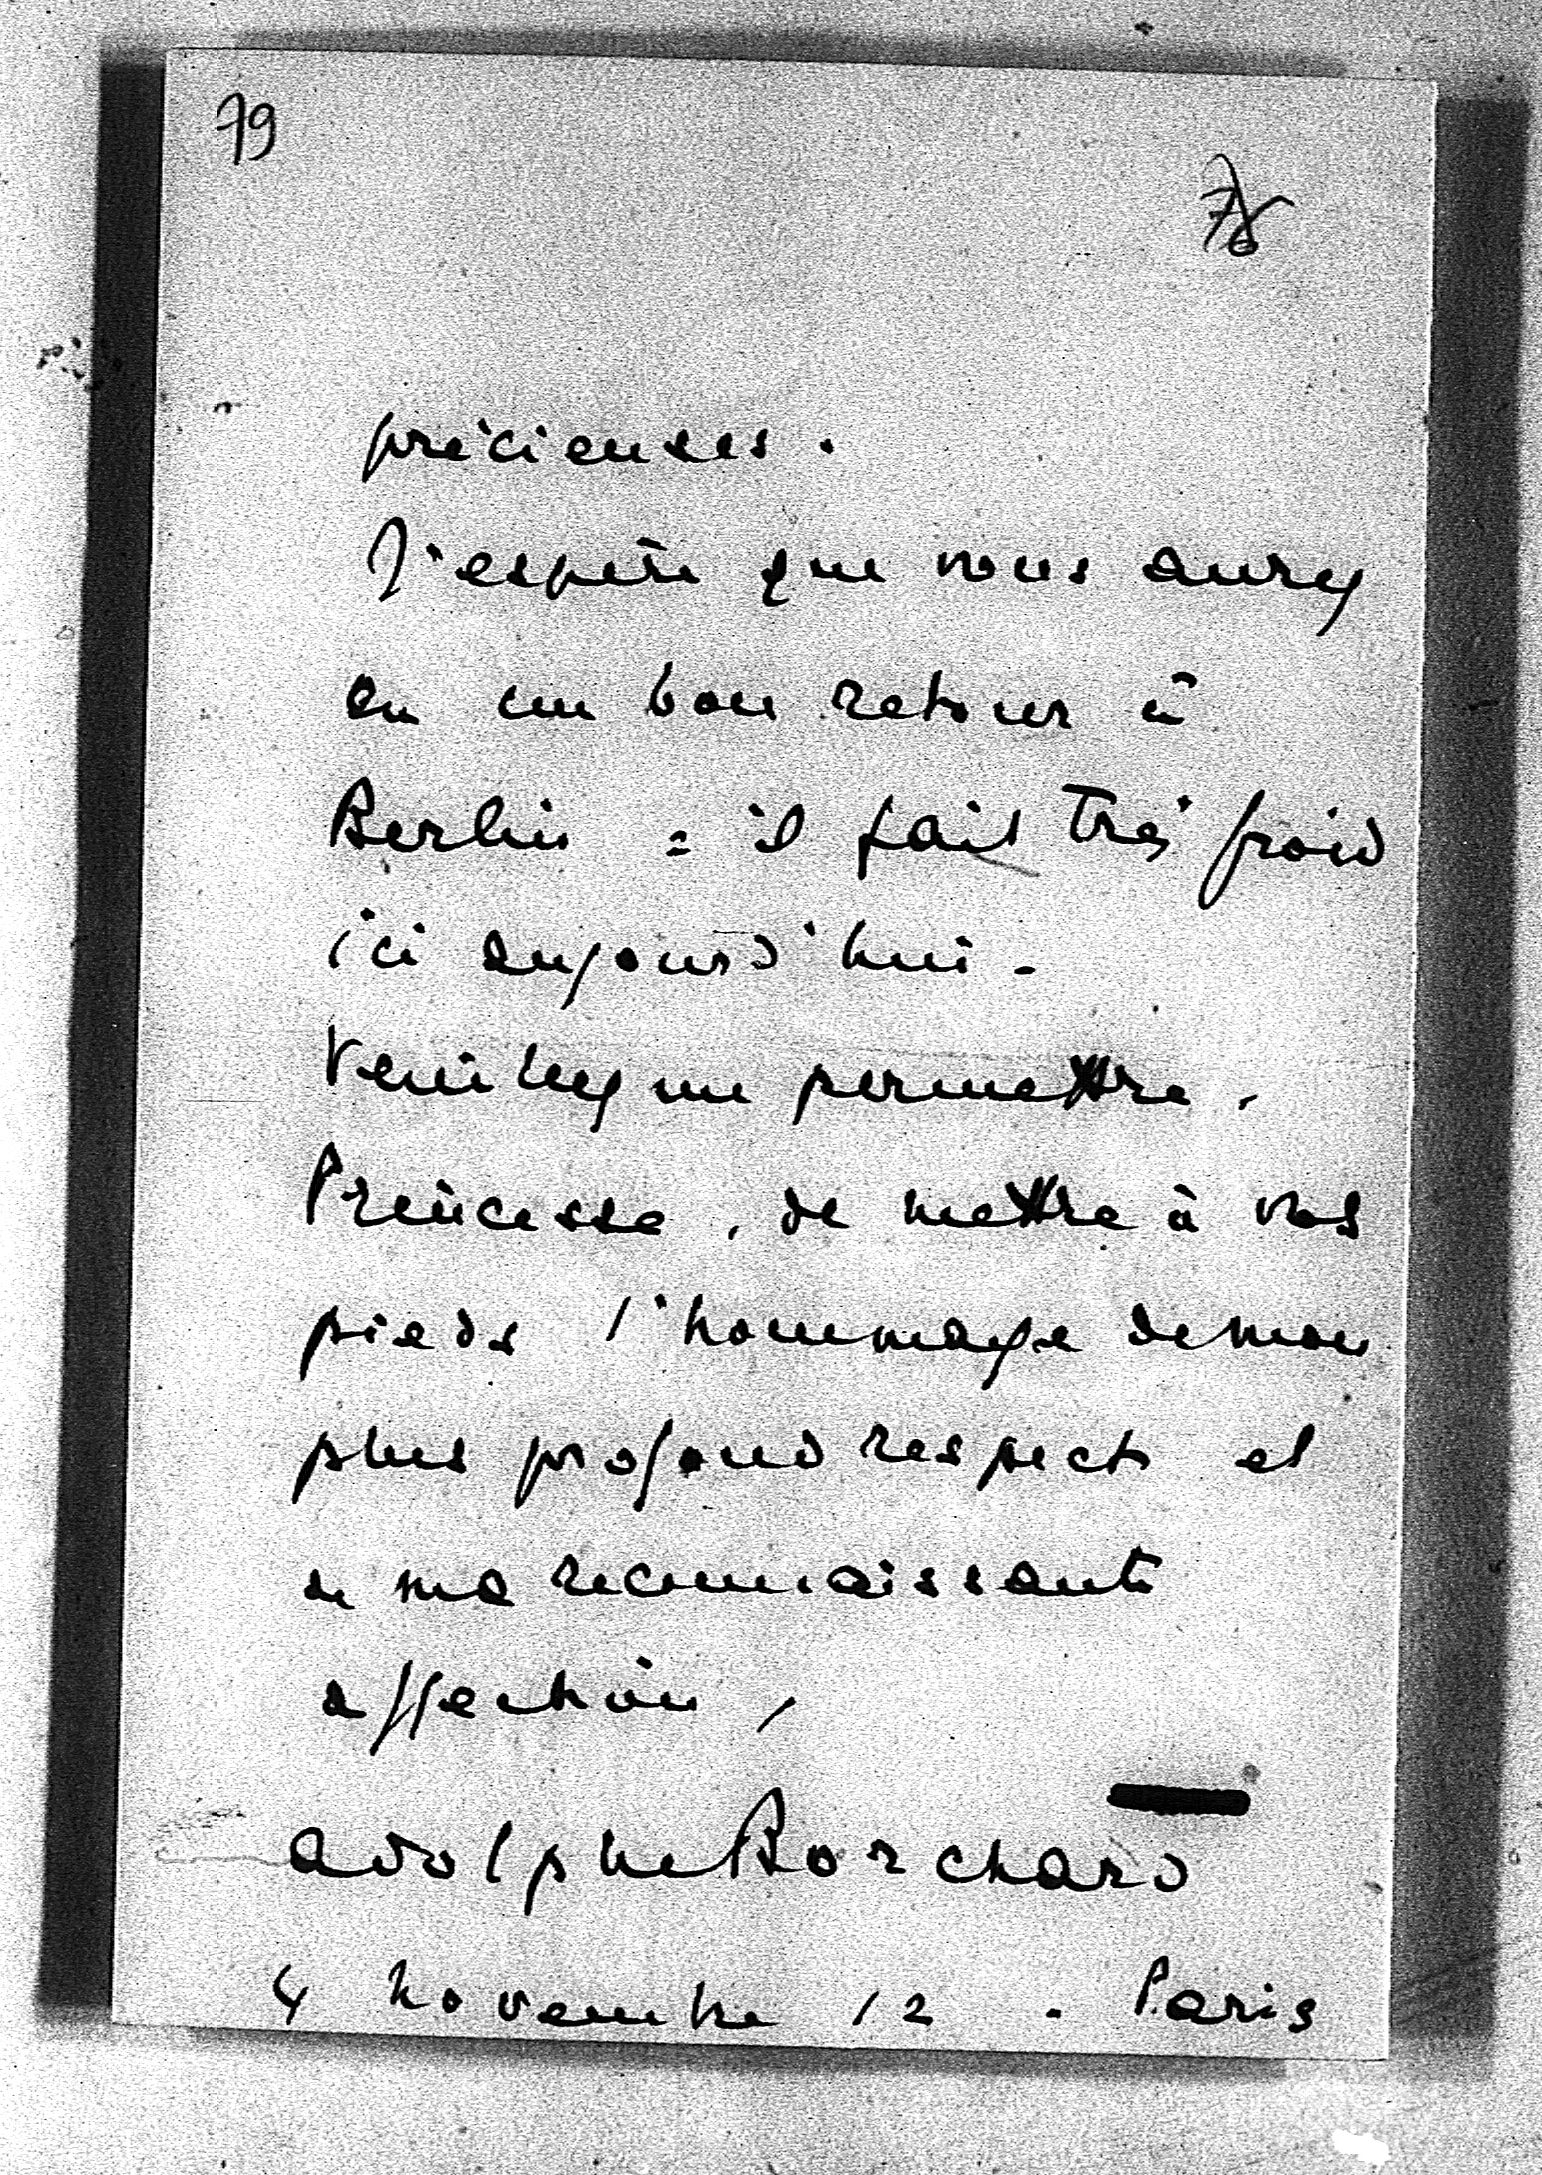 79
78
précieuses.
J'espère que vous aurez
eu un bon retour à
Berlin = il fait très froid
ici aujourd'hui -
Veuillez me permettre,
Princesse, de mettre à vos
pieds l'hommage de mon
plus profond respect et
de ma reconnaissante
affection,
Adolphe Borchard
4 novembre 12 . Paris